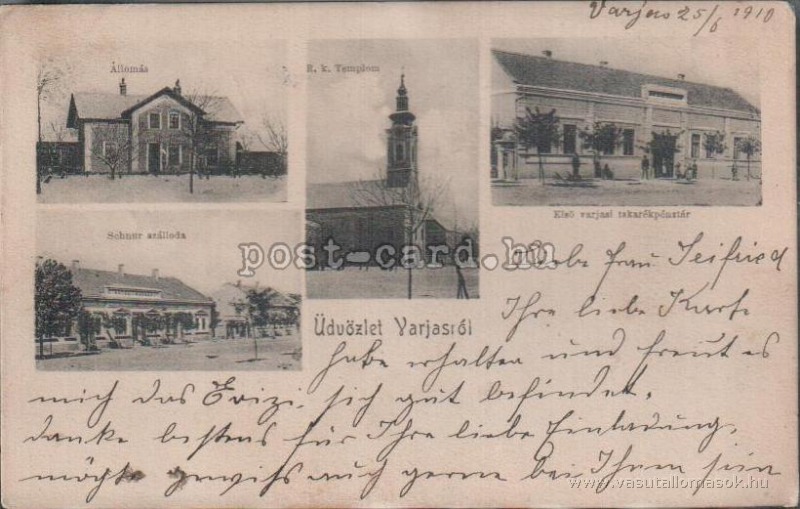 Varjas 25/6 1910
Állomás
R. k. Templom
Első varjasi takarékpénztár
Schnur szálloda
post-card.hu
Liebe Frau Seifried
Üdvözlet Varjasról
Ihre liebe Karte
habe erhalten und freut es
mich das Erizi sich gut befindet,
danke bestens für Ihre liebe Einladung,
möchte gewiß auch gerne bei Ihnen sein
www.vasutallomasok.hu